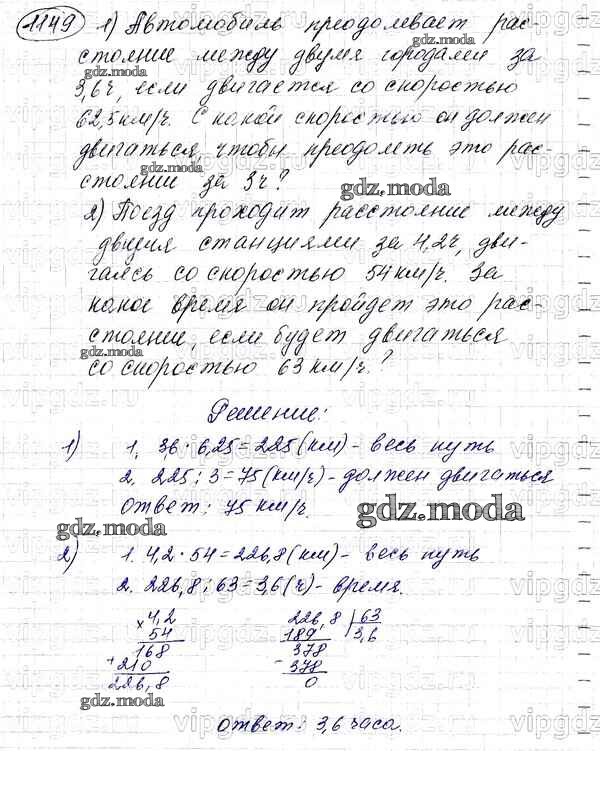 1149 1) Автомобиль преодолевает рас-
стояние между двумя городами за
3,6ч, если двигается со скоростью
62,5км/ч. С какой скоростью он должен
двигаться, чтобы преодолеть это рас-
стояние за 3ч?
2) Поезд проходит расстояние между
двумя станциями за 4,2ч, дви-
гаясь со скоростью 54км/ч. За
какое время он пройдет это рас-
стояние, если будет двигаться
со скоростью 63 км/ч.?
Решение:
1) 1. 36 · 6,25 = 225 (км) - весь путь
2. 225 : 3 = 75 (км/ч) - должен двигаться
Ответ: 75 км/ч.
2) 1. 4,2 · 54 = 226,8 (км) - весь путь
2. 226,8 : 63 = 3,6 (ч) - время.
× 4,2
54
168
+ 210
226,8
226,8 | 63
189 3,6
378
- 378
0
Ответ: 3,6 часа.
gdz.moda
gdz.moda
gdz.moda
gdz.moda
gdz.moda
gdz.moda
gdz.moda
gdz.moda
gdz.moda